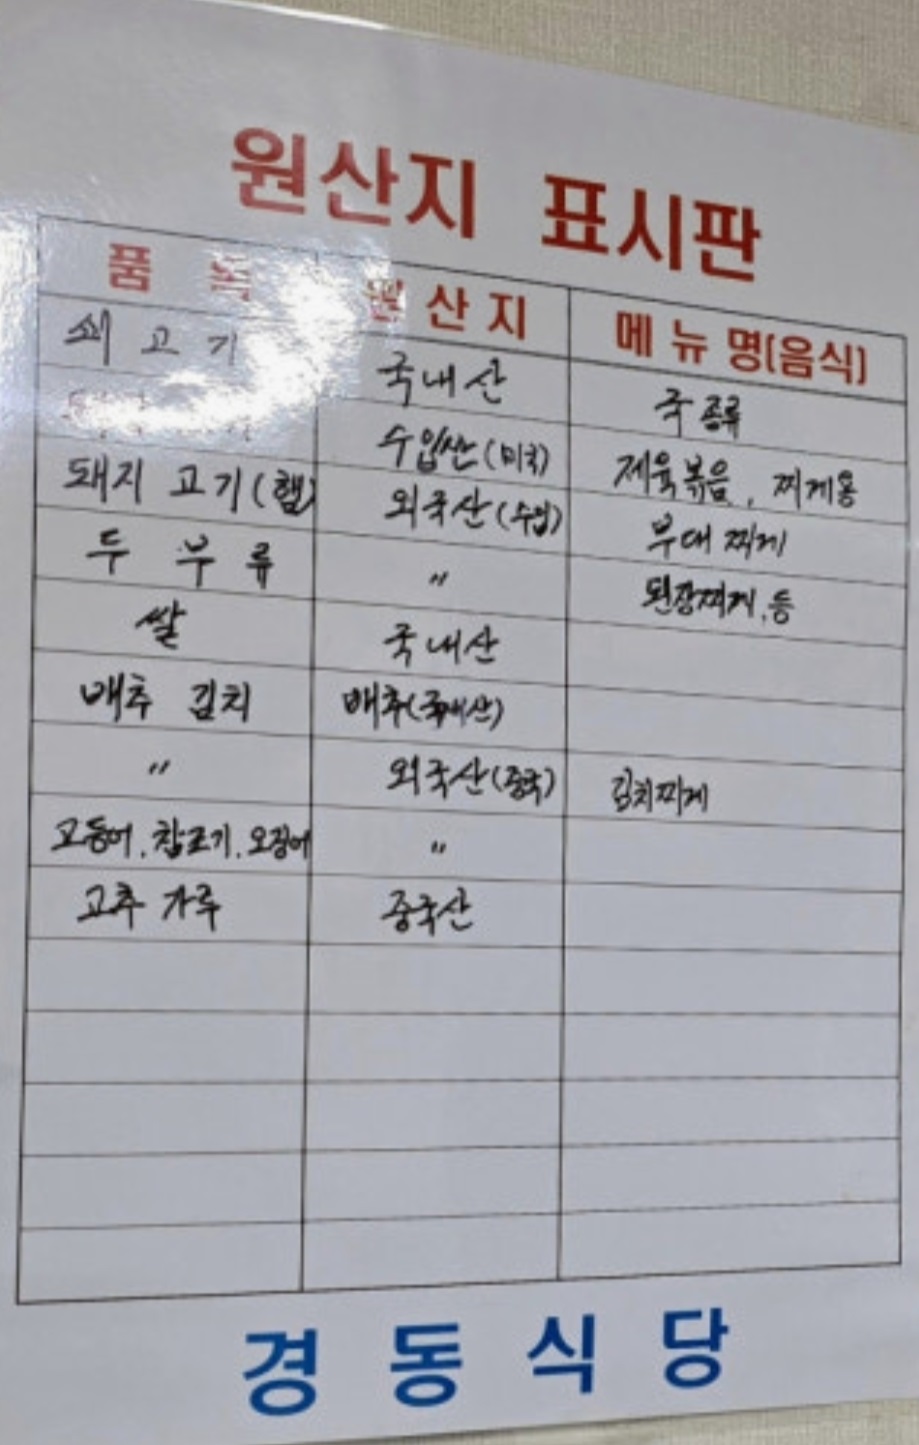 원산지 표시판
품 목 원 산 지 메 뉴 명(음식)
쇠 고 기 국내산 국 종류
수입산(미국) 제육볶음, 찌게용
돼지 고기(햄) 외국산(수입) 부대찌게
두 부 류 〃 된장찌게,등
쌀 국내산
배추 김치 배추(국내산)
〃 외국산(중국) 김치찌게
고등어, 참조기, 오징어 〃
고추 가루 중국산
경 동 식 당